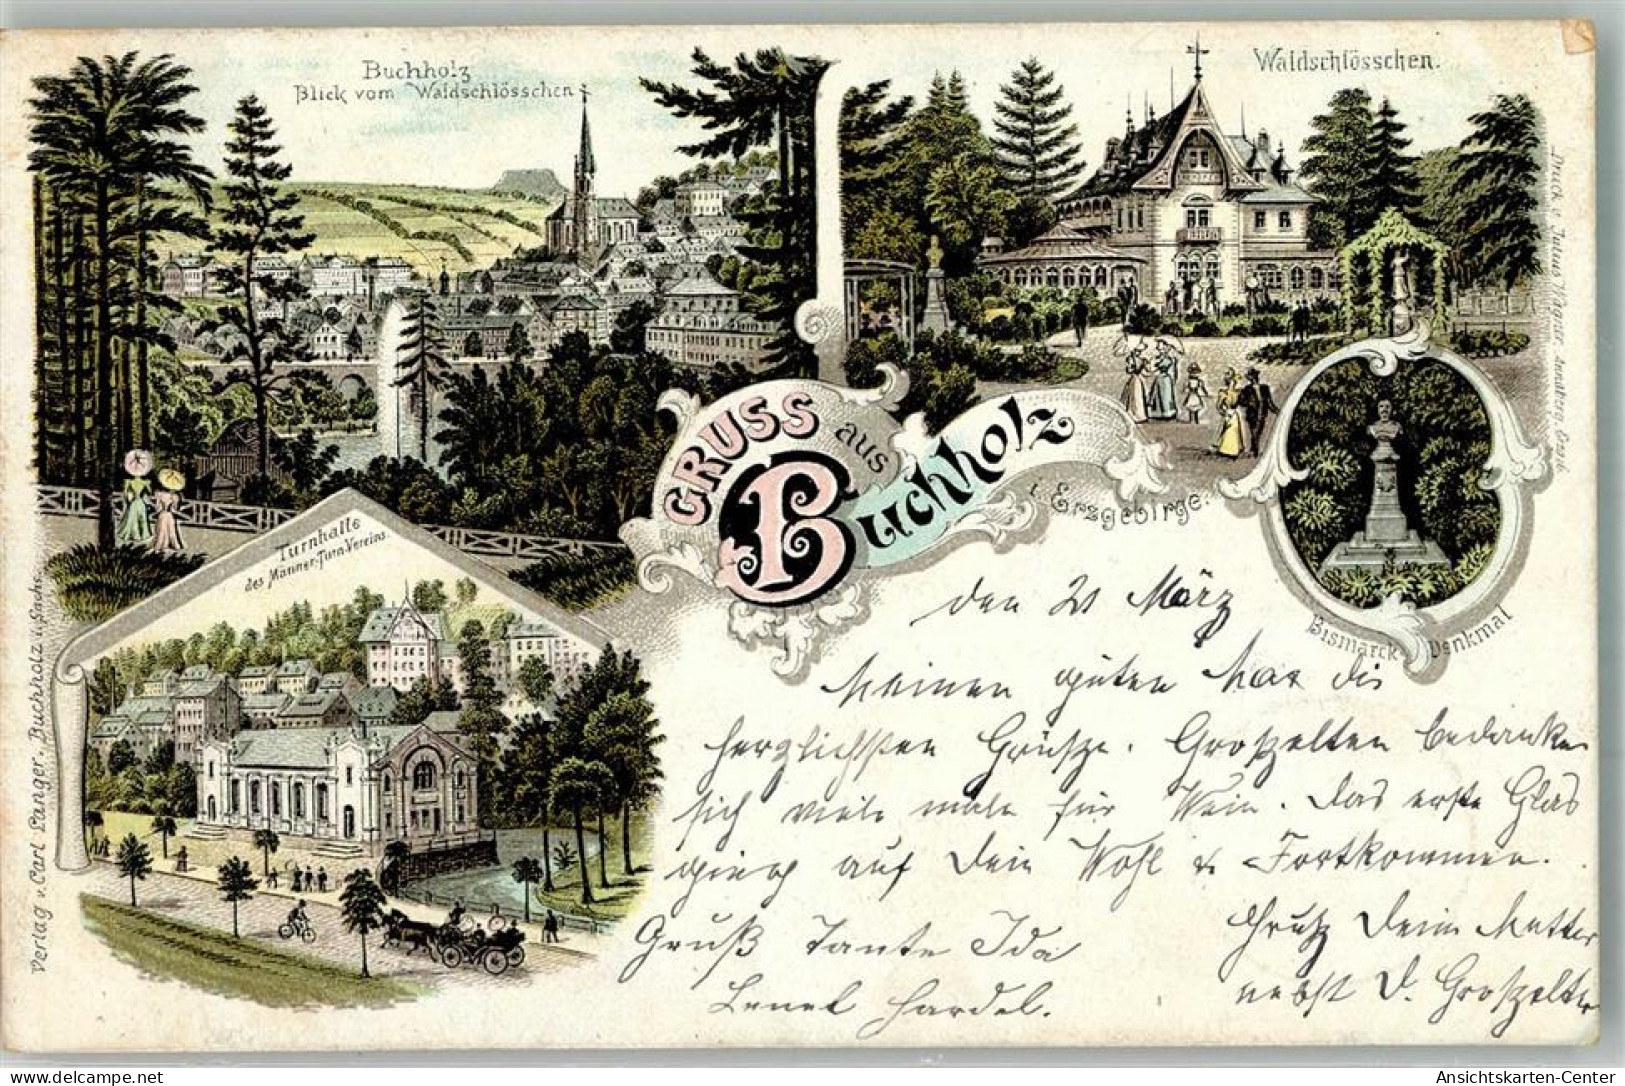 Buchholz
Blick vom Waldschlösschen
Waldschlösschen.
GRUSS aus
Buchholz
i. Erzgebirge.
Turnhalle
des Männer-Turn-Vereins.
Bismarck Denkmal
Verlag v. Carl Langer, Buchholz i. Sachs.
Druck v. Julius Wagner, Annaberg, Erzgeb.
den 21 März
Meinen guten Max die
herzlichsten Grüße. Großelten bedanken
sich viele male für Wein. Das erste Glas
ging auf Dein Wohl & Fortkommen.
Gruß Tante Ida
Gruß Deine Mutter
nebst D. Großelter
Ansichtskarten-Center